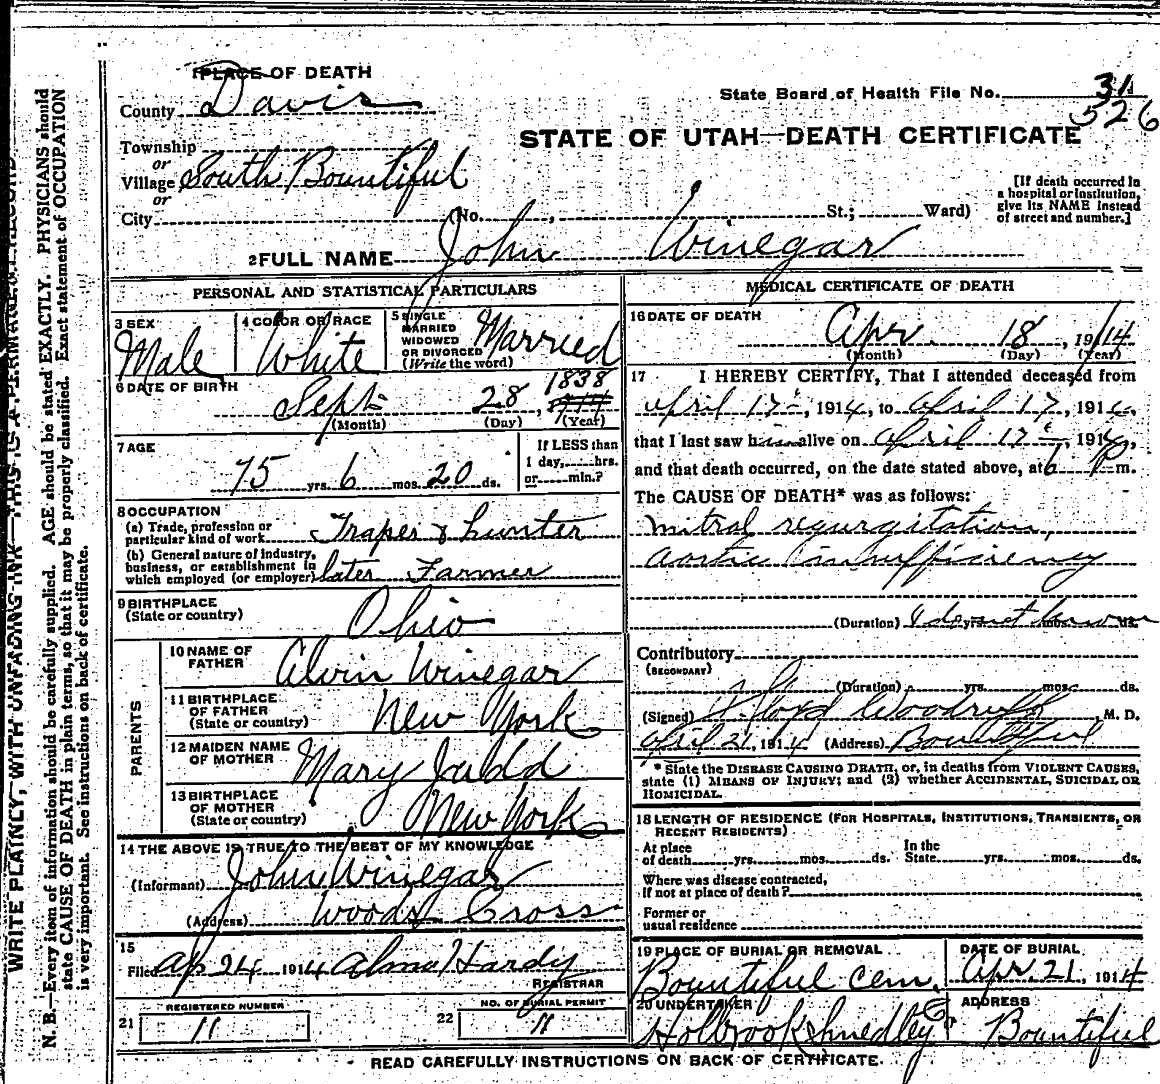 WRITE PLAINLY, WITH UNFADING INK—THIS IS A PERMANENT RECORD
N. B.—Every item of information should be carefully supplied. AGE should be stated EXACTLY. PHYSICIANS should
state CAUSE OF DEATH in plain terms, so that it may be properly classified. Exact statement of OCCUPATION
is very important. See instructions on back of certificate.
1 PLACE OF DEATH
County Davis
State Board of Health File No. 31
526
STATE OF UTAH—DEATH CERTIFICATE
Township
or
Village South Bountiful
or
City (No. , St.; Ward)
[If death occurred in
a hospital or institution,
give its NAME instead
of street and number.]
2 FULL NAME John Winegar
PERSONAL AND STATISTICAL PARTICULARS
3 SEX Male
4 COLOR OR RACE White
5 SINGLE
MARRIED
WIDOWED
OR DIVORCED
(Write the word) Married
6 DATE OF BIRTH
Sept 28, 1838
(Month) (Day) (Year)
7 AGE
75 yrs. 6 mos. 20 ds.
If LESS than
1 day, hrs.
or min.?
8 OCCUPATION
(a) Trade, profession or
particular kind of work Traper & hunter
(b) General nature of industry,
business, or establishment in
which employed (or employer) later Farmer
9 BIRTHPLACE
(State or country) Ohio
PARENTS
10 NAME OF
FATHER Alvin Winegar
11 BIRTHPLACE
OF FATHER
(State or country) New York
12 MAIDEN NAME
OF MOTHER Mary Judd
13 BIRTHPLACE
OF MOTHER
(State or country) New York
14 THE ABOVE IS TRUE TO THE BEST OF MY KNOWLEDGE
(Informant) John Winegar
(Address) Woods Cross
15
Filed Ap 24 1914 Alma Hardy
REGISTRAR
REGISTERED NUMBER
21 11
NO. OF BURIAL PERMIT
22 11
MEDICAL CERTIFICATE OF DEATH
16 DATE OF DEATH
Apr. 18, 1914
(Month) (Day) (Year)
17 I HEREBY CERTIFY, That I attended deceased from
April 17, 1914, to April 17, 1914,
that I last saw him alive on April 17, 1914,
and that death occurred, on the date stated above, at 6 P m.
The CAUSE OF DEATH* was as follows:
mitral regurgitation,
aortic insufficiency
(Duration) I do not know yrs. mos. ds.
Contributory
(SECONDARY)
(Duration) yrs. mos. ds.
(Signed) Floyd Woodruff, M. D.
April 21, 1914 (Address) Bountiful
* State the DISEASE CAUSING DEATH, or, in deaths from VIOLENT CAUSES,
state (1) MEANS OF INJURY; and (2) whether ACCIDENTAL, SUICIDAL OR
HOMICIDAL.
18 LENGTH OF RESIDENCE (FOR HOSPITALS, INSTITUTIONS, TRANSIENTS, OR
RECENT RESIDENTS)
At place
of death yrs. mos. ds.
In the
State yrs. mos. ds.
Where was disease contracted,
If not at place of death?
Former or
usual residence
19 PLACE OF BURIAL OR REMOVAL
Bountiful Cem.
DATE OF BURIAL
Apr. 21, 1914
20 UNDERTAKER
Holbrook & Smedley
ADDRESS
Bountiful
READ CAREFULLY INSTRUCTIONS ON BACK OF CERTIFICATE.